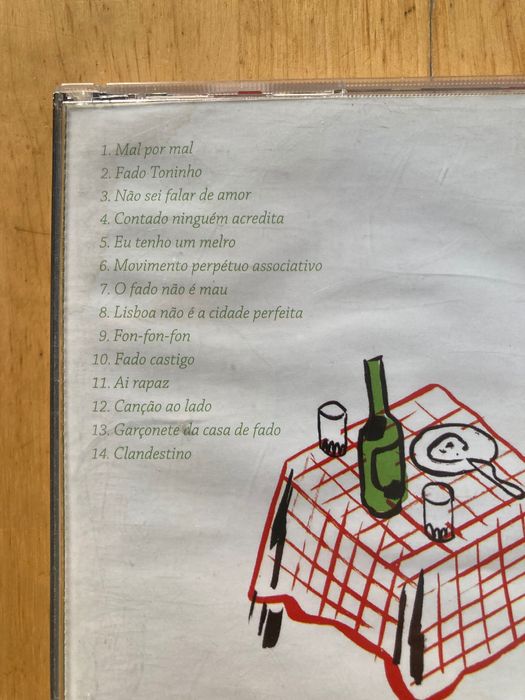 1. Mal por mal
2. Fado Toninho
3. Não sei falar de amor
4. Contado ninguém acredita
5. Eu tenho um melro
6. Movimento perpétuo associativo
7. O fado não é mau
8. Lisboa não é a cidade perfeita
9. Fon-fon-fon
10. Fado castigo
11. Ai rapaz
12. Canção ao lado
13. Garçonete da casa de fado
14. Clandestino